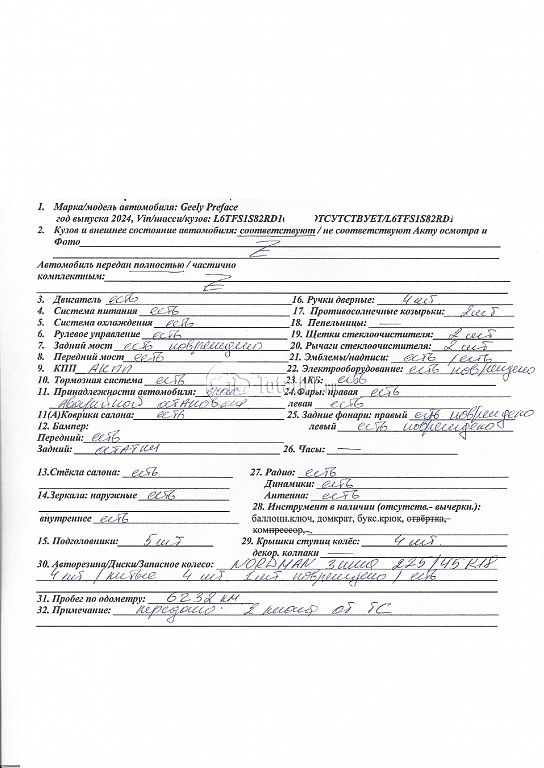 1. Марка/модель автомобиля: Geely Preface
год выпуска 2024, Vin/шасси/кузов: L6TFS1S82RD1 ОТСУТСТВУЕТ/L6TFS1S82RD1
2. Кузов и внешнее состояние автомобиля: соответствуют / не соответствуют Акту осмотра и
Фото Z
Автомобиль передан полностью / частично
комплектным: Z
3. Двигатель есть
4. Система питания есть
5. Система охлаждения есть
6. Рулевое управление есть
7. Задний мост есть повреждено
8. Передний мост есть
9. КПП АКПП
10. Тормозная система есть
11. Принадлежности автомобиля: знак
аварийной остановки
11(А)Коврики салона: есть
12. Бампер:
Передний: есть
Задний: остатки
16. Ручки дверные: 4 шт
17. Противосолнечные козырьки: 2 шт
18. Пепельницы: —
19. Щетки стеклоочистителя: 2 шт
20. Рычаги стеклоочистителя: 2 шт
21. Эмблемы/надписи: есть / есть
22. Электрооборудование: есть повреждено
23. АКБ: есть
24. Фары: правая есть
левая есть
25. Задние фонари: правый есть повреждено
левый есть повреждено
26. Часы: —
13.Стёкла салона: есть
14.Зеркала: наружные есть
внутреннее есть
15. Подголовники: 5 шт
27. Радио: есть
Динамики: есть
Антенна: есть
28. Инструмент в наличии (отсутств.- вычеркн.):
баллонн.ключ, домкрат, букс.крюк, отвёртка,
компрессор,
29. Крышки ступиц колёс: 4 шт.
декор. колпаки —
30. Авторезина/Диски/Запасное колесо: NORDMAN зима 225/45 R18
4 шт / литые 4 шт. 1 шт повреждено / есть
31. Пробег по одометру: 6232 км
32. Примечание: передано 2 ключа от ТС